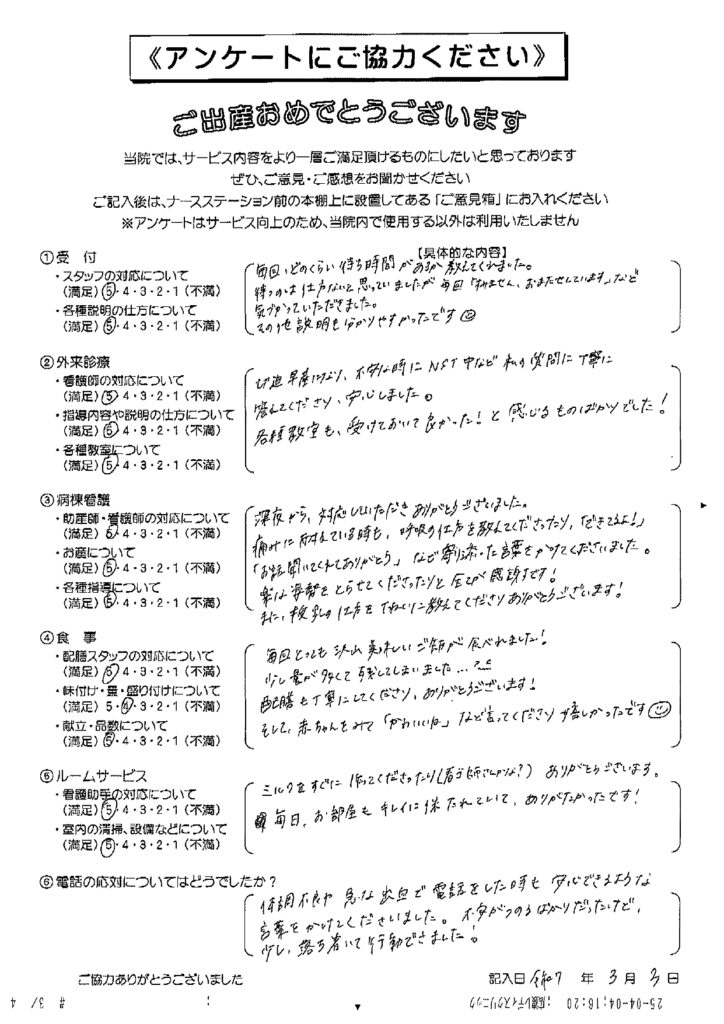 《アンケートにご協力ください》
ご出産おめでとうございます
当院では、サービス内容をより一層ご満足頂けるものにしたいと思っております
ぜひ、ご意見・ご感想をお聞かせください
ご記入後は、ナースステーション前の本棚上に設置してある「ご意見箱」にお入れください
※アンケートはサービス向上のため、当院内で使用する以外は利用いたしません
①受　付
【具体的な内容】
・スタッフの対応について
(満足) 5・4・3・2・1 (不満)
・各種説明の仕方について
(満足) 5・4・3・2・1 (不満)
毎回、どのくらい待ち時間があるか教えてくれました。
待つのは仕方ないと思っていましたが毎回「すみません、おまたせしています」など
気づかっていただきました。
その他説明も分かりやすかったです
②外来診療
・看護師の対応について
(満足) 5・4・3・2・1 (不満)
・指導内容や説明の仕方について
(満足) 5・4・3・2・1 (不満)
・各種教室について
(満足) 5・4・3・2・1 (不満)
切迫早産になり、不安な時にNST中など私の質問に丁寧に
答えてくださり、安心しました。
各種教室も、受けておいて良かった！と感じるものばかりでした！
③病棟看護
・助産師・看護師の対応について
(満足) 5・4・3・2・1 (不満)
・お産について
(満足) 5・4・3・2・1 (不満)
・各種指導について
(満足) 5・4・3・2・1 (不満)
深夜から、対応していただきありがとうございました。
痛みに耐えている時も、呼吸の仕方を教えてくださったり、「できてるよ！」
「お話聞いてくれてありがとう」など寄り添った言葉をかけてくださいました。
楽な姿勢をとらせてくださったりと全てが感謝です！
また、授乳の仕方をていねいに教えてくださりありがとうございます！
④食　事
・配膳スタッフの対応について
(満足) 5・4・3・2・1 (不満)
・味付け・量・盛り付けについて
(満足) 5・4・3・2・1 (不満)
・献立・品数について
(満足) 5・4・3・2・1 (不満)
毎回とっても沢山美味しいご飯が食べれました！
少し量が多くて残してしまいました…
配膳も丁寧にしてくださり、ありがとうございます！
そして、赤ちゃんをみて「かわいいね」など言ってくださり嬉しかったです
⑤ルームサービス
・看護助手の対応について
(満足) 5・4・3・2・1 (不満)
・室内の清掃、設備などについて
(満足) 5・4・3・2・1 (不満)
ミルクをすぐに作ってくださったり(看護師さんかな？)ありがとうございます。
毎日、お部屋もキレイに保たれていて、ありがたかったです！
⑥電話の応対についてはどうでしたか？
体調不良や急な出血で電話をした時も安心できるような
言葉をかけてくださいました。不安がつのるばかりだったけど、
少し、落ち着いて行動できました！
ご協力ありがとうございました
記入日 令和7 年 3 月 3 日
25-04-04;16:20
# 3/ 4